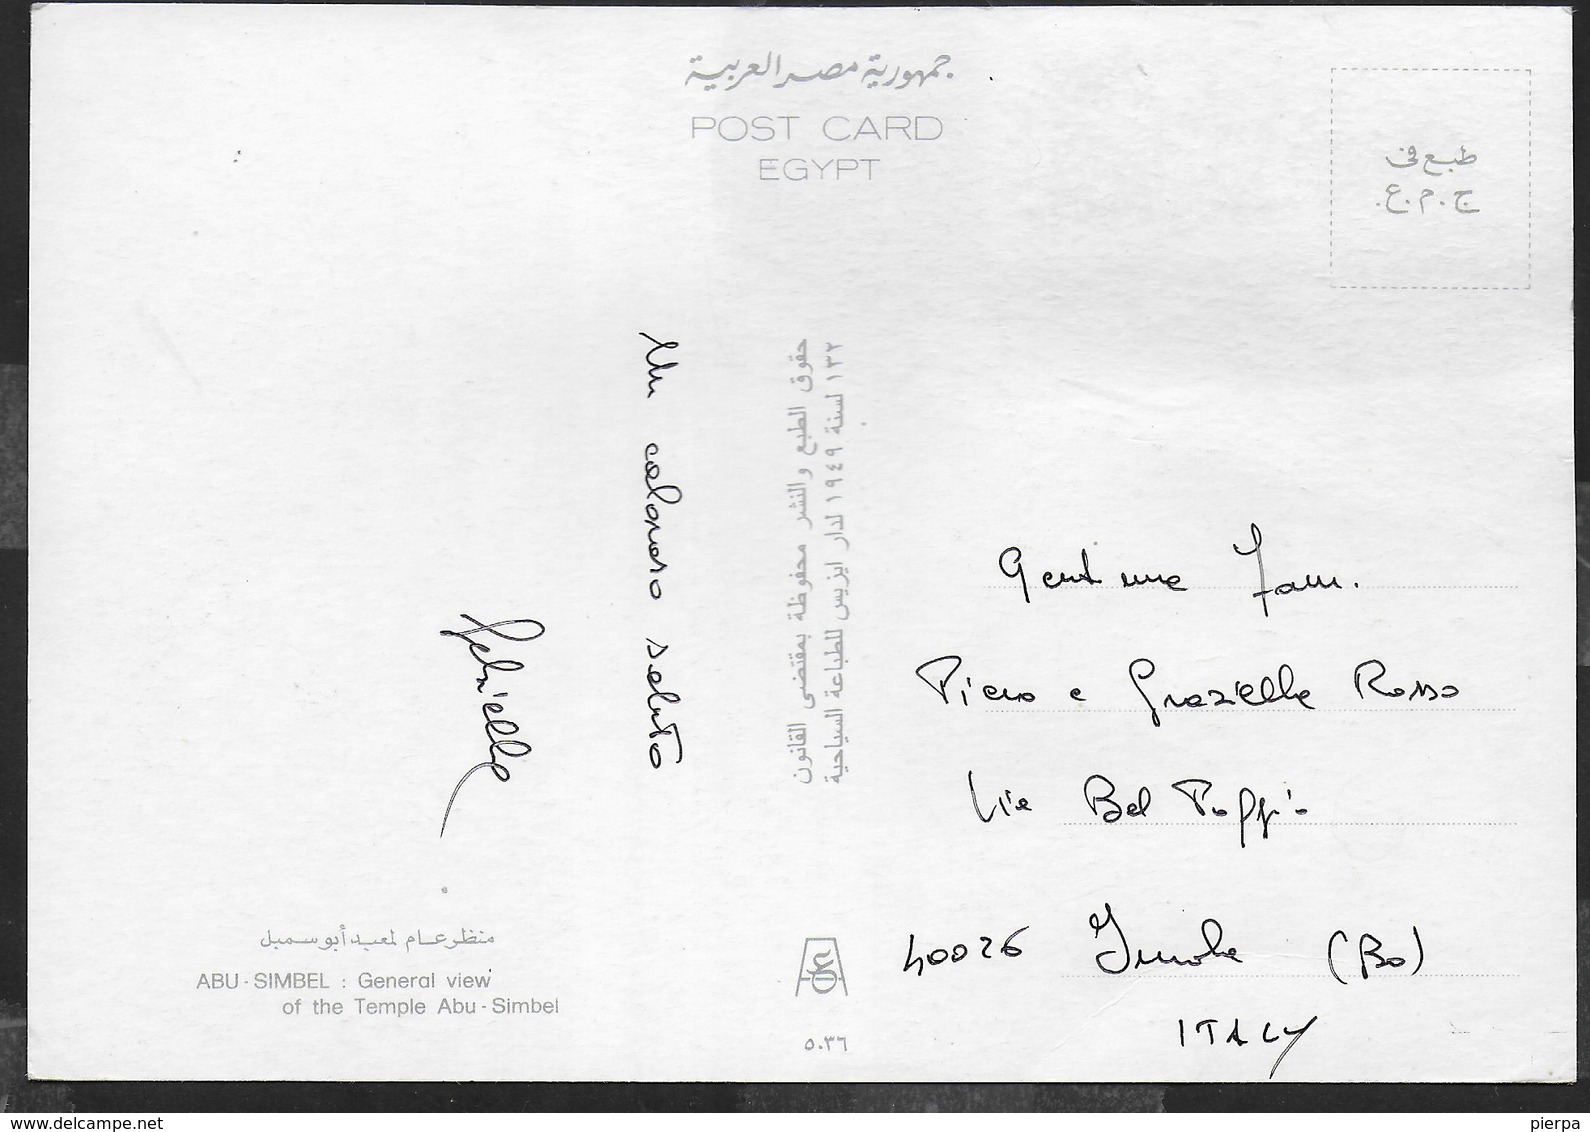 جمهورية مصر العربية
POST CARD
EGYPT
طبع فى
ج.م.ع.
Un caloroso saluto
Gabriella
حقوق الطبع والنشر محفوظة بمقتضى القانون
١٣٢ لسنة ١٩٤٩ لدار ايزيس للطباعة السياحية
Gent.me Fam.
Piero e Graziella Rosso
Via Bel Poggio
40026 Imola (Bo)
ITALY
منظر عام لمعبد أبو سمبل
ABU-SIMBEL : General view
of the Temple Abu-Simbel
٥٠٣٦
www.delcampe.net
pierpa